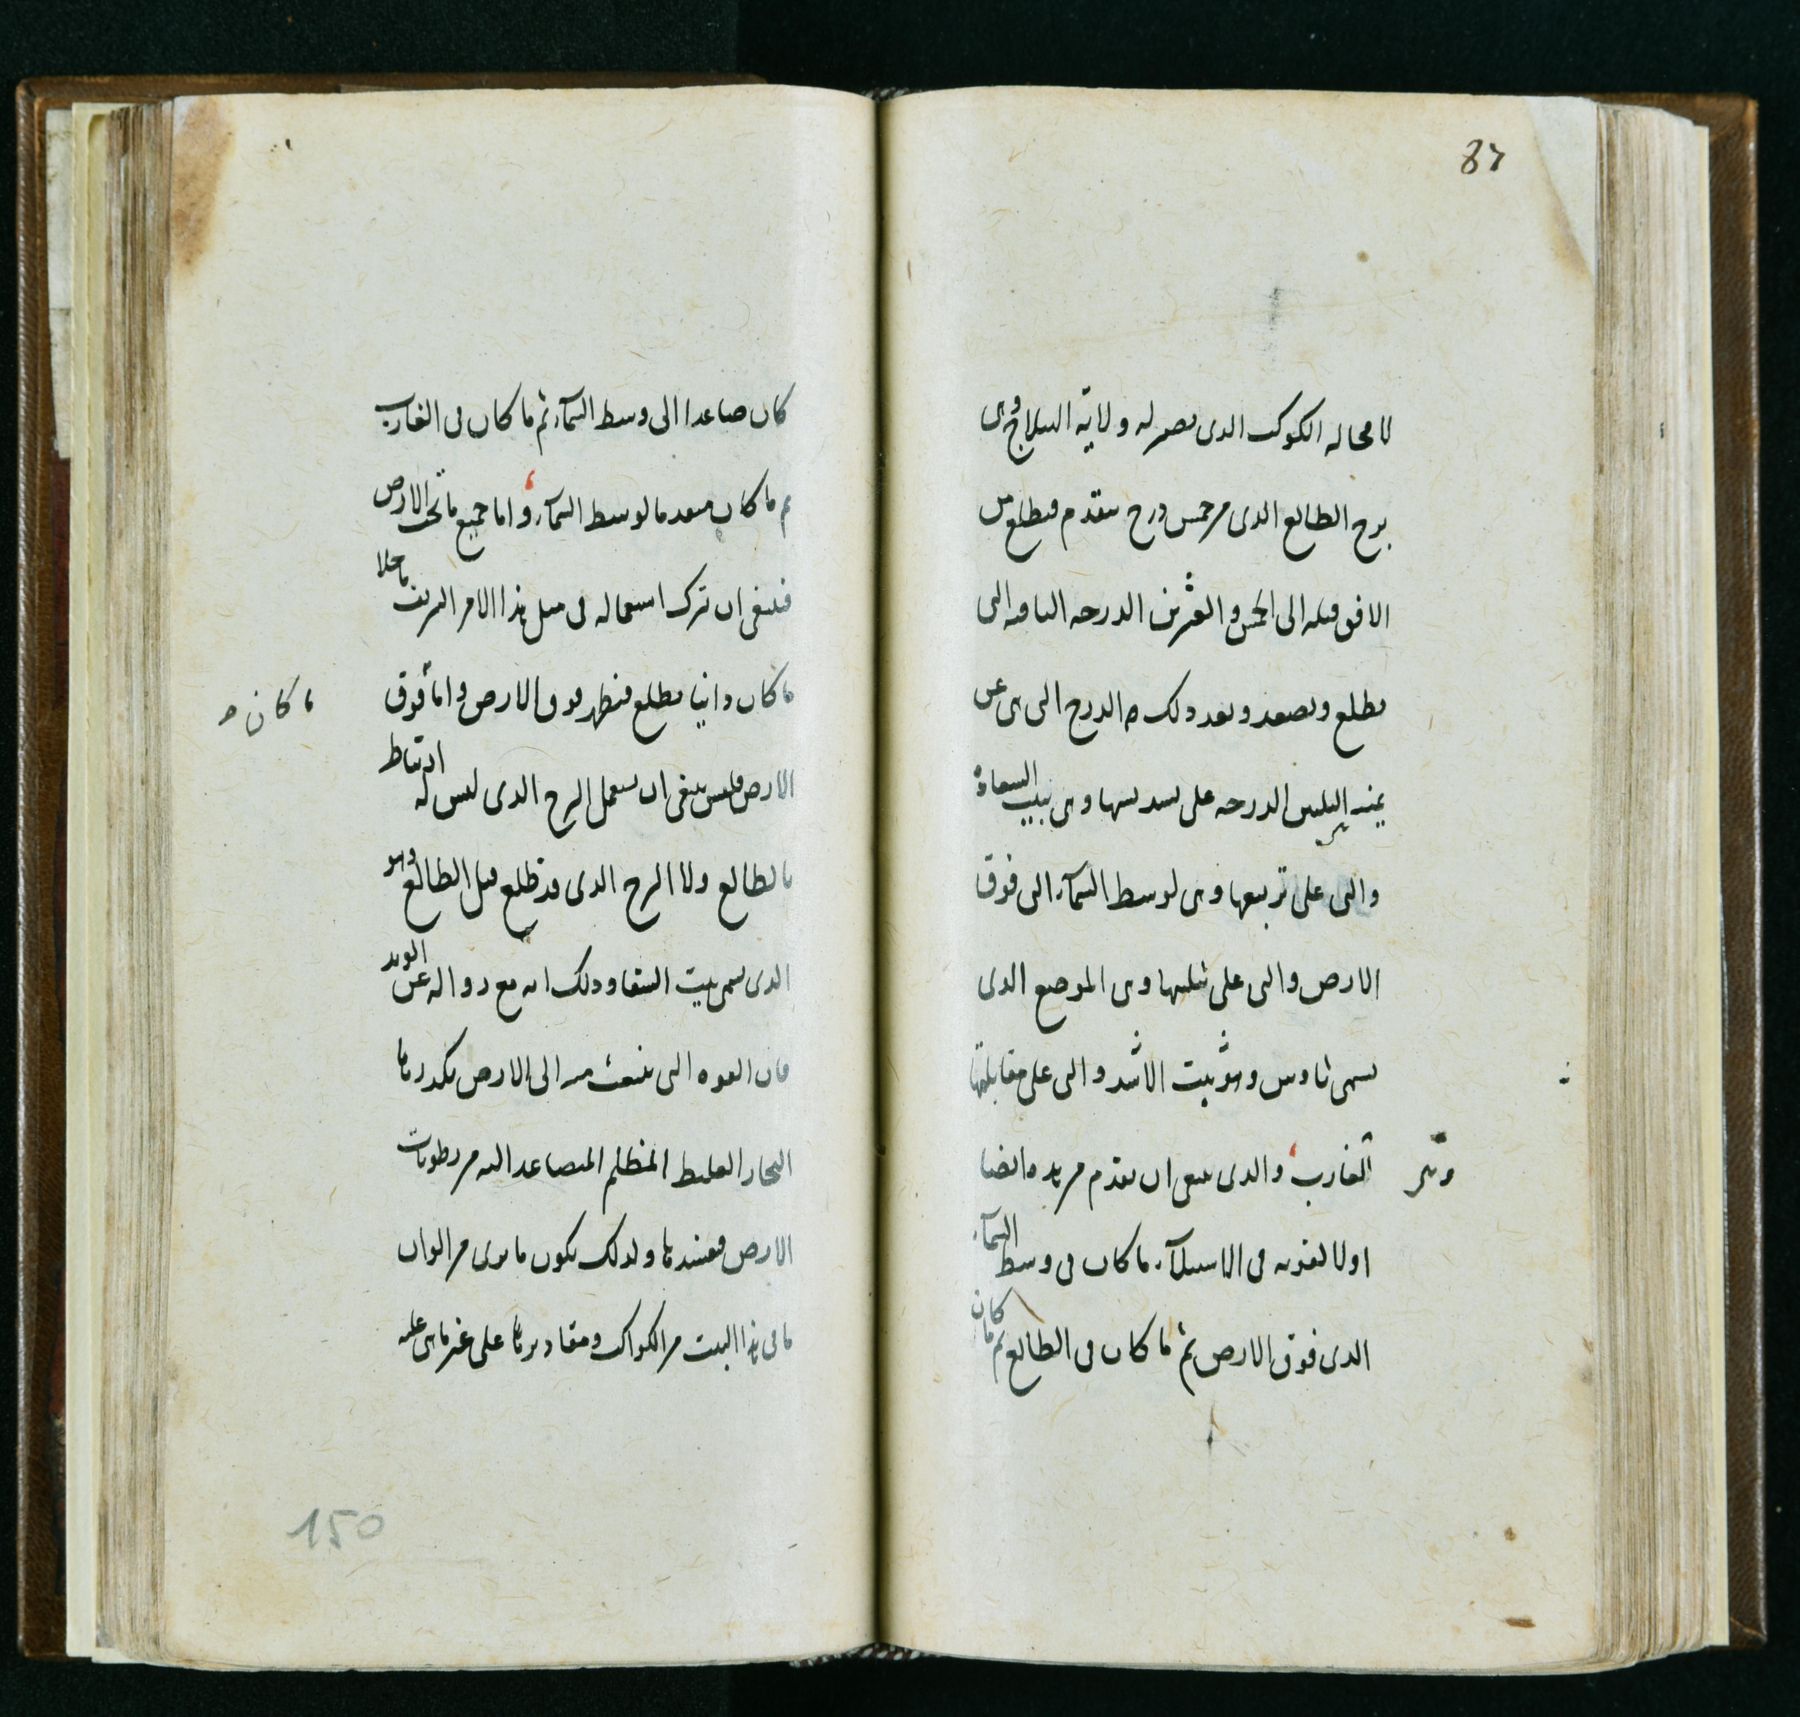 87
لا محاله الكوكب الدى تصير له ولاية الهيلاج وهى
برج الطالع الدى من خمس درج تتقدم فتطلع من
الافق قبله الى الخمس والعشرين الدرجه الباقيه التى
تطلع وتصعد وبعد ذلك من الدرج التى هى عن
يمنه هذه الثلثين الدرجه على تسديسها وهى بيت السعادة
والتى على تربيعها وهى لوسط السمآء التى فوق
الارض والتى على تثليثها وهى الموضع الدى
يسمى ثاوس وهو بيت الاشد والتى على مقابلتها
وتر
الغارب والدى ينبغى ان يقدم من هذه ايضا
اولا لقوته فى الاستيلآء ما كان فى وسط السمآء
الدى فوق الارض ثم ما كان فى الطالع ثم ما كان
كان صاعدا الى وسط السمآء ثم ما كان فى الغارب
ثم ما كان متقدما لوسط السمآء واما جميع ما تحت الارض
فينبغى ان تترك استعماله فى مثل هذا الامر الشريف ما خلا
ما كان
ما كان دانيا يطلع فيظهر فوق الارض واما فوق
الارض فليس ينبغى ان يستعمل البرج الدى ليس له ارتباط
بالطالع ولا البرج الدى قد طلع قبل الطالع وهو
الدى يسمى بيت الشقا وذلك انه مع زواله عن الوتد
فان القوه التى تنبعث منه الى الارض يكدرها
البخار الغليظ المظلم المتصاعد اليه من رطوبات
الارض فيفسدها ولذلك يكون ما يرى من الوان
ما فى هذا البيت من الكواكب ومقاديرها على غير ما هى عليه
150